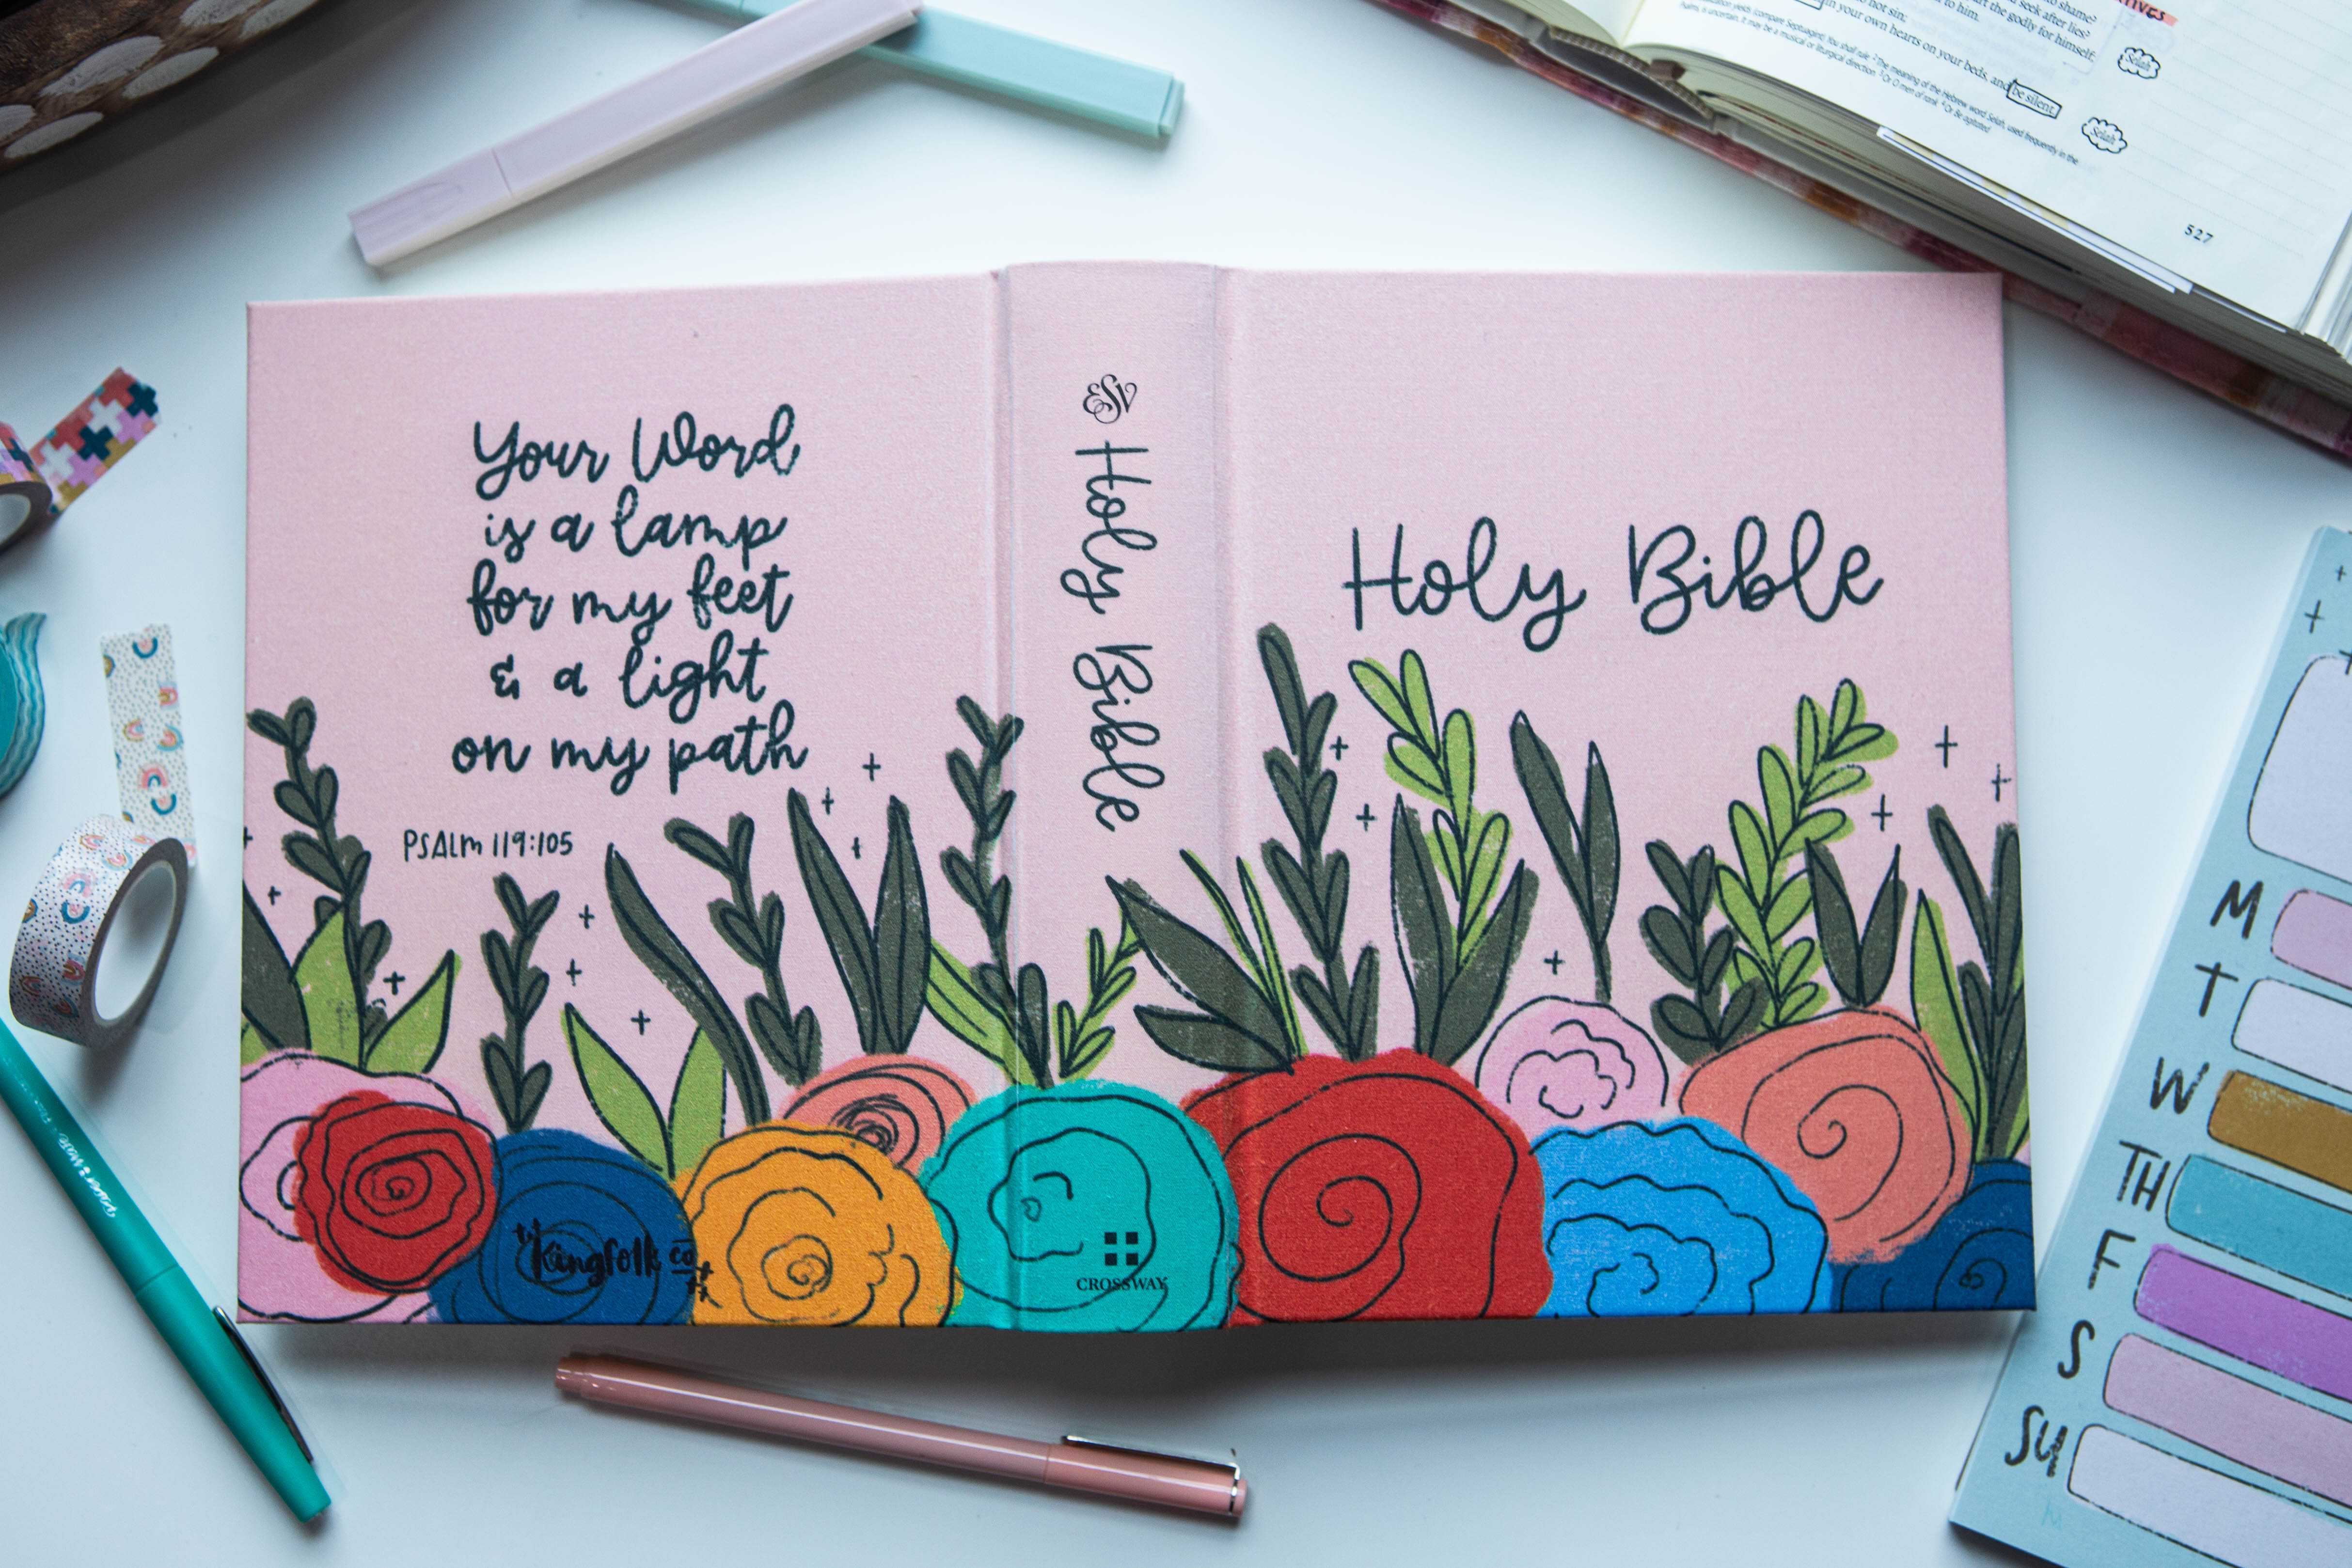 Your Word
is a lamp
for my feet
& a light
on my path
PSALM 119:105
Kingfolk co
ESV
Holy Bible
CROSSWAY
Holy Bible
to shame?
seek after lies?
the godly for himself;
to him.
not sin;
in your own hearts on your beds, and be silent.
Selah
Selah
527
M
T
W
TH
F
S
SU